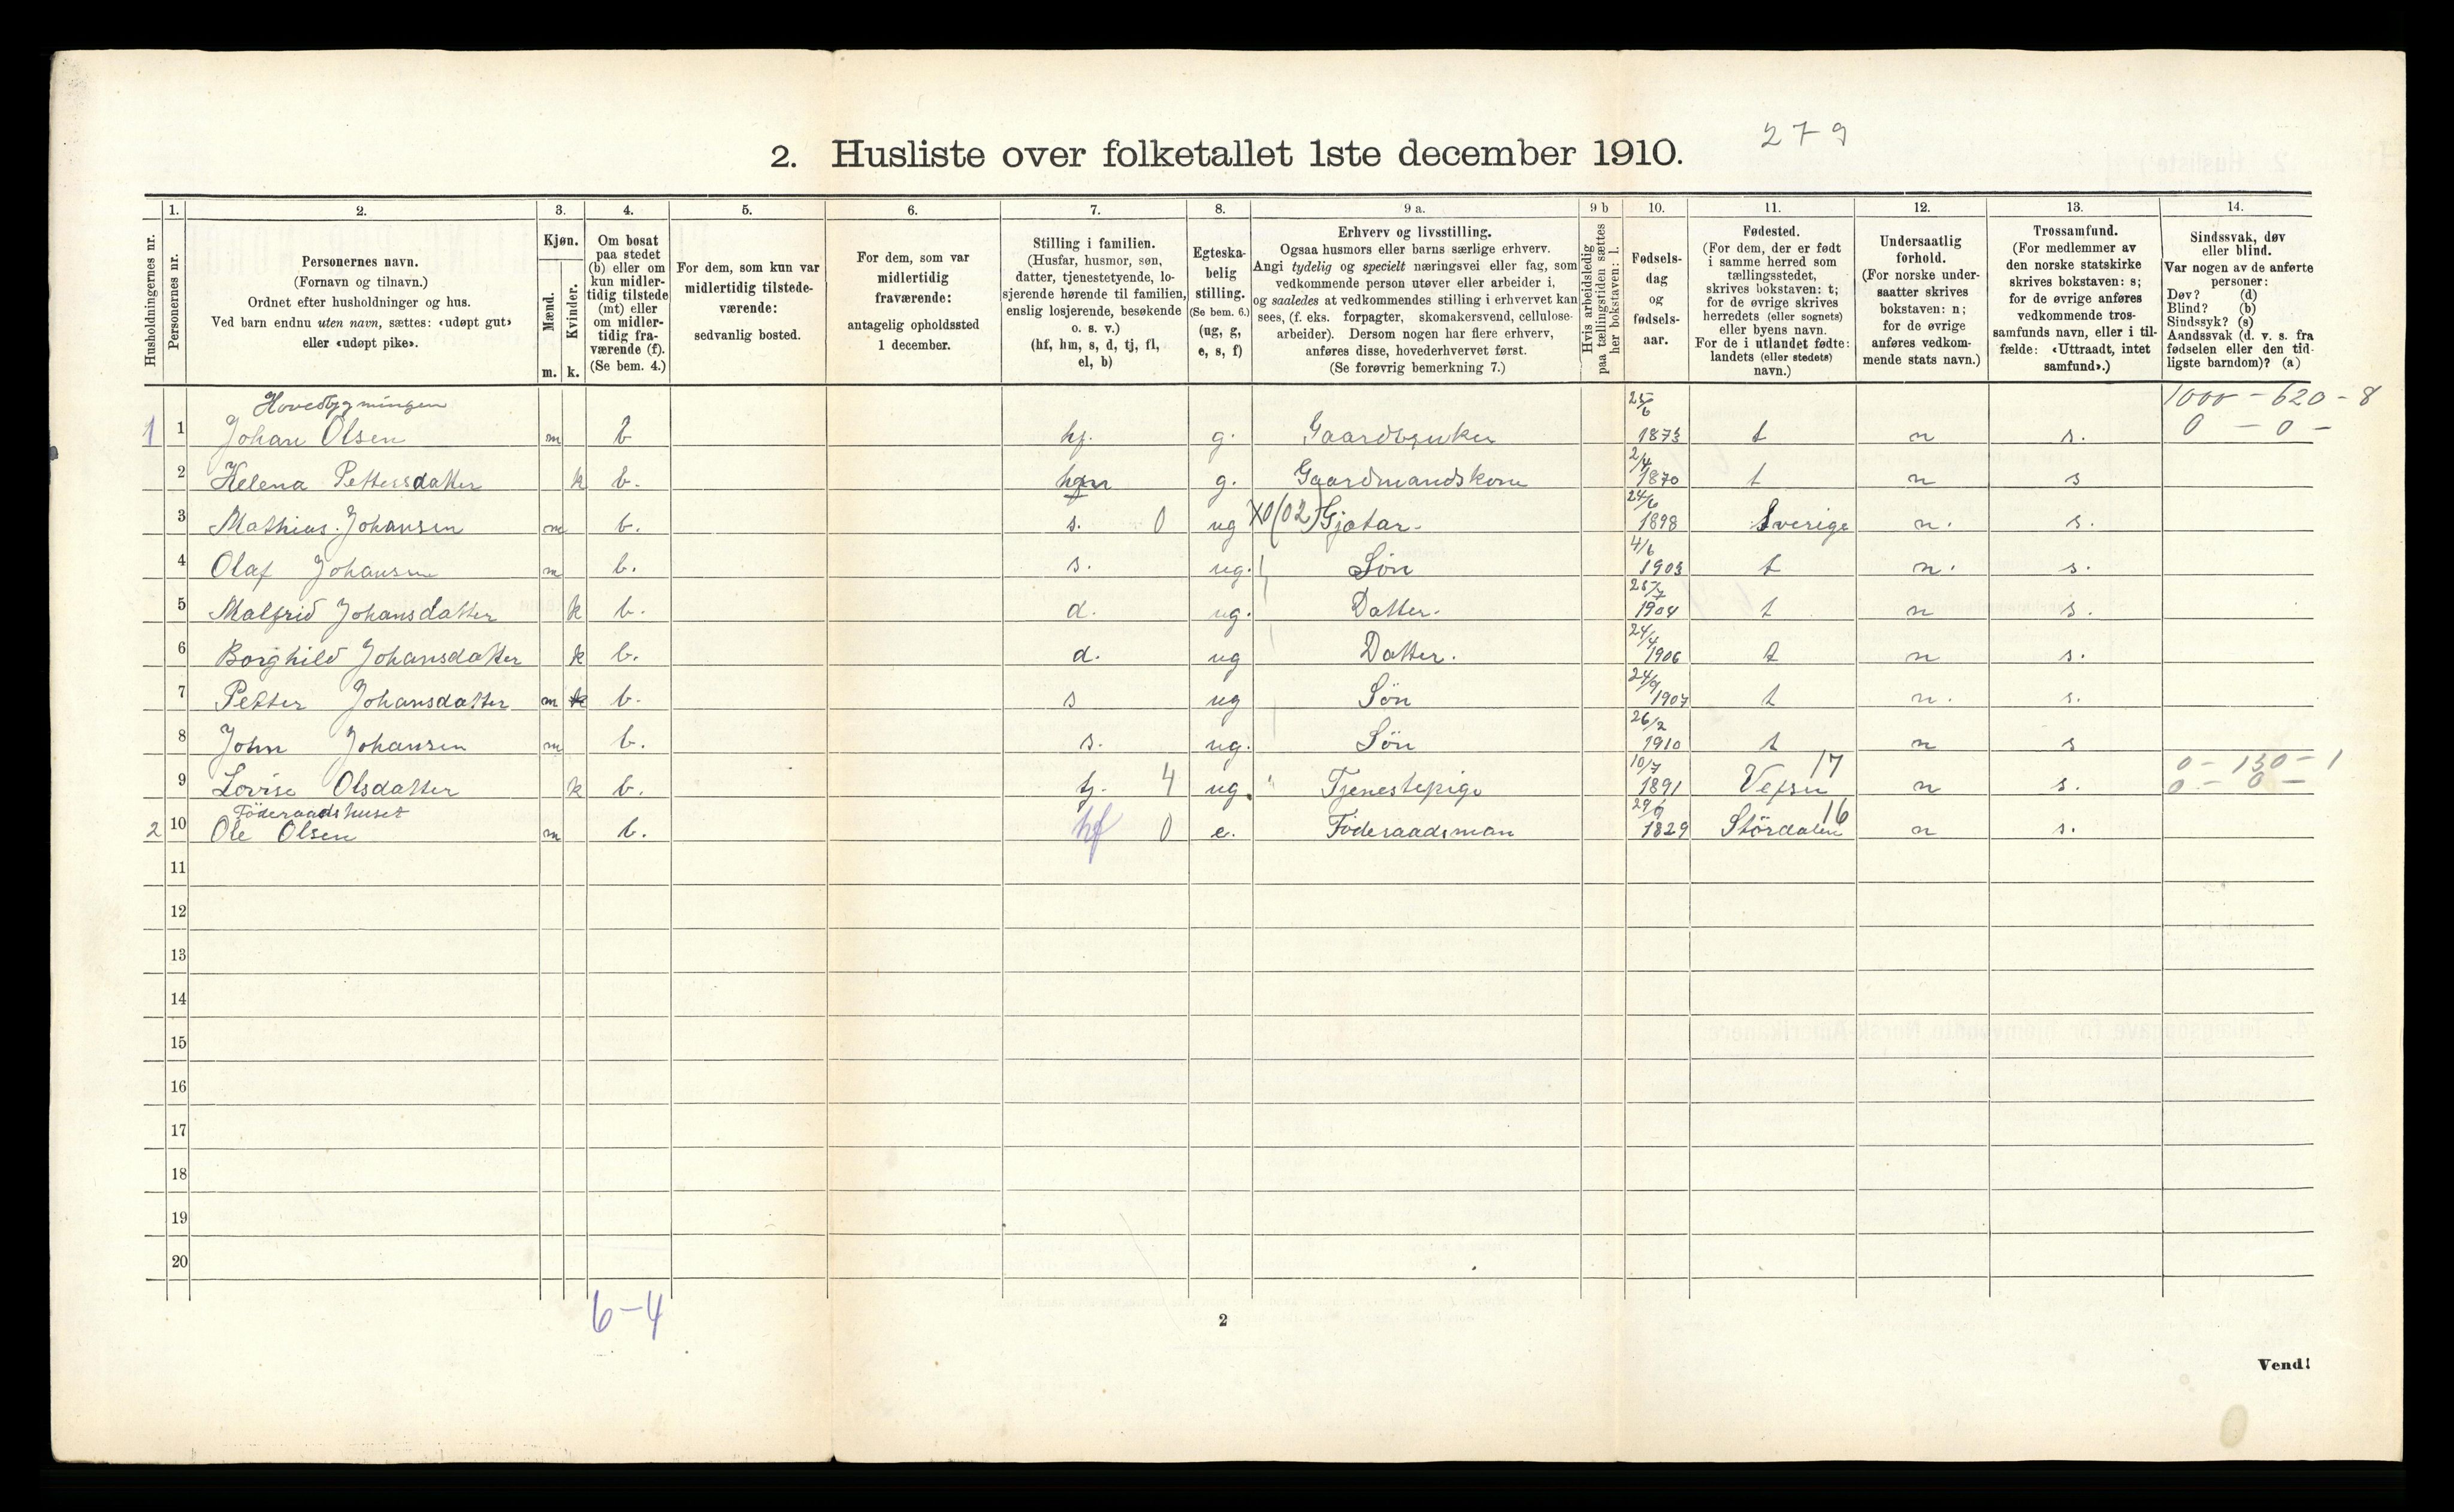 279
2. Husliste over folketallet 1ste december 1910.
Husholdningernes nr.
1.
Personernes nr.
2.
Personernes navn.
(Fornavn og tilnavn.)
Ordnet efter husholdninger og hus.
Ved barn endnu uten navn, sættes: «udøpt gut»
eller «udøpt pike».
3.
Kjøn.
Mænd.
Kvinder.
m. k.
4.
Om bosat
paa stedet
(b) eller om
kun midler-
tidig tilstede
(mt) eller
om midler-
tidig fra-
værende (f).
(Se bem. 4.)
5.
For dem, som kun var
midlertidig tilstede-
værende:
sedvanlig bosted.
6.
For dem, som var
midlertidig
fraværende:
antagelig opholdssted
1 december.
7.
Stilling i familien.
(Husfar, husmor, søn,
datter, tjenestetyende, lo-
sjerende hørende til familien,
enslig losjerende, besøkende
o. s. v.)
(hf, hm, s, d, tj, fl,
el, b)
8.
Egteska-
belig
stilling.
(Se bem. 6.)
(ug, g,
e, s, f)
9 a.
Erhverv og livsstilling.
Ogsaa husmors eller barns særlige erhverv.
Angi tydelig og specielt næringsvei eller fag, som
vedkommende person utøver eller arbeider i,
og saaledes at vedkommendes stilling i erhvervet kan
sees, (f. eks. forpagter, skomakersvend, cellulose-
arbeider). Dersom nogen har flere erhverv,
anføres disse, hovederhvervet først.
(Se forøvrig bemerkning 7.)
9 b
Hvis arbeidsledig
paa tællingstiden sættes
her bokstaven: l.
10.
Fødsels-
dag
og
fødsels-
aar.
11.
Fødested.
(For dem, der er født
i samme herred som
tællingsstedet,
skrives bokstaven: t;
for de øvrige skrives
herredets (eller sognets)
eller byens navn.
For de i utlandet fødte:
landets (eller stedets)
navn.)
12.
Undersaatlig
forhold.
(For norske under-
saatter skrives
bokstaven: n;
for de øvrige
anføres vedkom-
mende stats navn.)
13.
Trossamfund.
(For medlemmer av
den norske statskirke
skrives bokstaven: s;
for de øvrige anføres
vedkommende tros-
samfunds navn, eller i til-
fælde: «Uttraadt, intet
samfund».)
14.
Sindssvak, døv
eller blind.
Var nogen av de anførte
personer:
Døv? (d)
Blind? (b)
Sindssyk? (s)
Aandssvak (d. v. s. fra
fødselen eller den tid-
ligste barndom)? (a)
Hovedbygningen 25/6 1000 - 620 - 8
1 1 Johan Olsen m b hf. g. Gaardbruker 1873 t n s. 0 - 0 -
2/4
2 Helena Pettersdatter k b. hm g. Gaardmandskone 1870 t n s
24/6
3 Mathias Johansen m b. s. 0 ug X0(02) Gjætar 1898 Sverige n. s.
4/6
4 Olaf Johansen m b. s. ug. Søn 1903 t n. s.
25/7
5 Malfrid Johansdatter k b. d. ug. Datter. 1904 t n s.
24/4
6 Borghild Johansdatter k b. d. ug Datter. 1906 t n s.
24/9
7 Petter Johansdatter m k b. s ug Søn 1907 t n. s.
26/2
8 John Johansen m b. s. ug. Søn 1910 t n s
10/7 17 0 - 130 - 1
9 Lovise Olsdatter k b. tj. 4 ug. Tjenestepige 1891 Vefsn n s. 0 - 0 -
Föderaadshuset 29/9 16
2 10 Ole Olsen m b. hf 0 e. Föderaadsman 1829 Stördalen n s.
11
12
13
14
15
16
17
18
19
20
6-4
2
Vend!